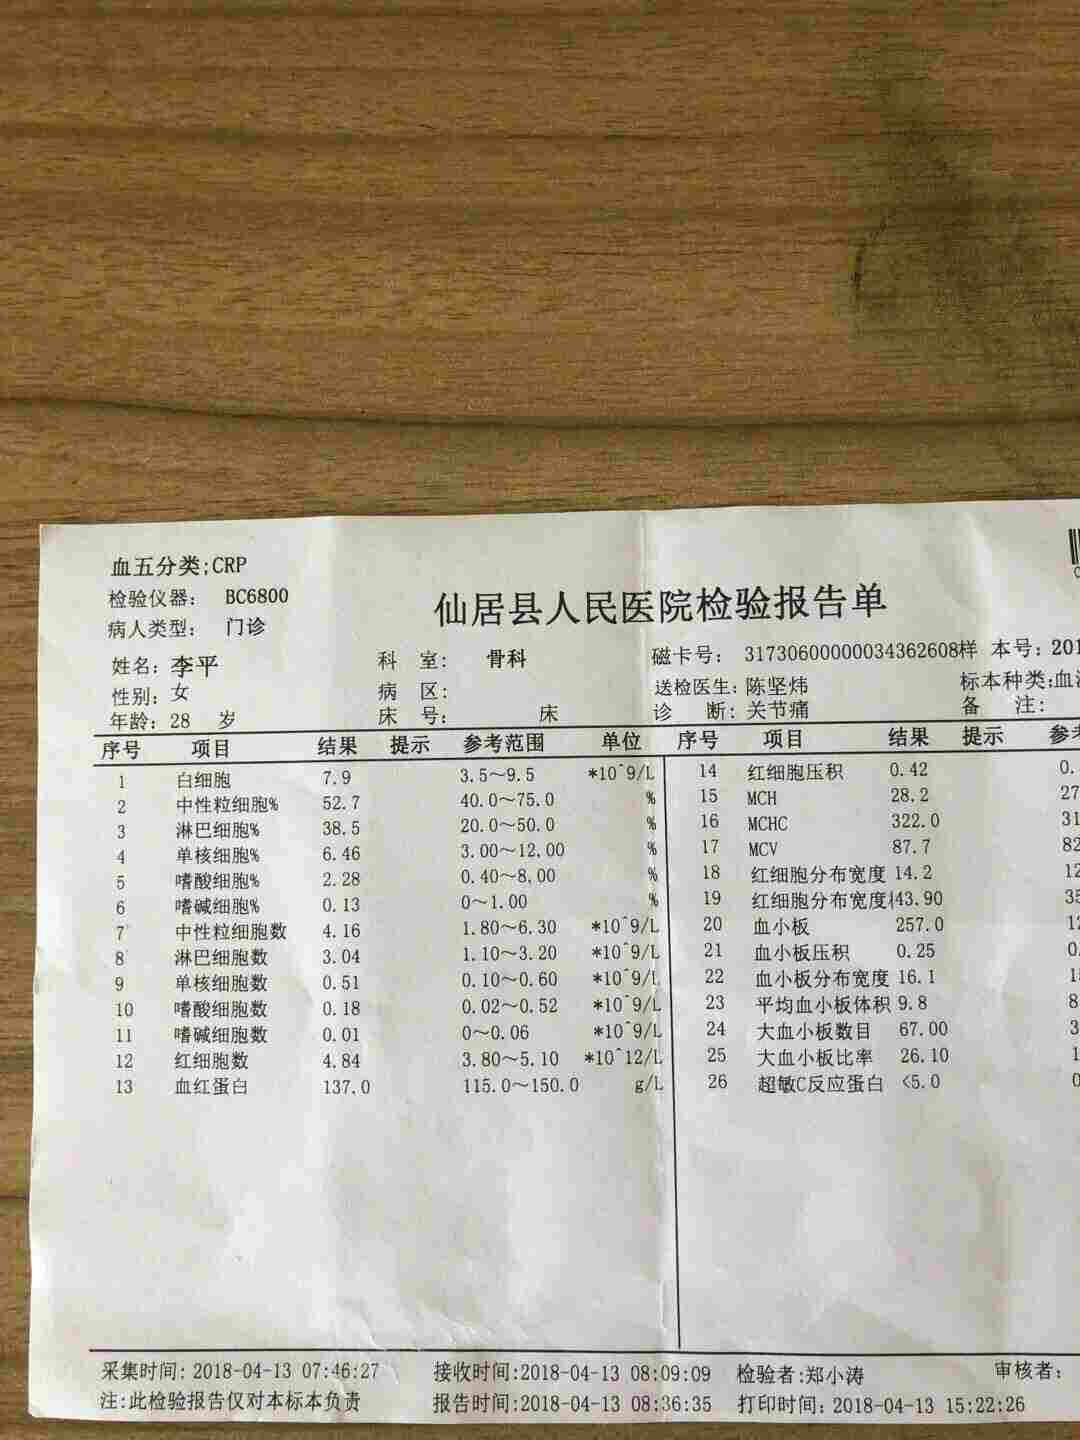 血五分类;CRP
检验仪器: BC6800
病人类型: 门诊
仙居县人民医院检验报告单
姓名: 李平 科 室: 骨科 磁卡号: 31730600000034362608样 本号: 201
性别: 女 病 区: 送检医生: 陈坚炜 标本种类:血
年龄: 28 岁 床 号: 床 诊 断: 关节痛 备 注:
序号 项目 结果 提示 参考范围 单位 序号 项目 结果 提示 参考
1 白细胞 7.9 3.5~9.5 *10^9/L 14 红细胞压积 0.42 0.
2 中性粒细胞% 52.7 40.0~75.0 % 15 MCH 28.2 27
3 淋巴细胞% 38.5 20.0~50.0 % 16 MCHC 322.0 31
4 单核细胞% 6.46 3.00~12.00 % 17 MCV 87.7 82
5 嗜酸细胞% 2.28 0.40~8.00 % 18 红细胞分布宽度 14.2 12
6 嗜碱细胞% 0.13 0~1.00 % 19 红细胞分布宽度 43.90 35
7 中性粒细胞数 4.16 1.80~6.30 *10^9/L 20 血小板 257.0 12
8 淋巴细胞数 3.04 1.10~3.20 *10^9/L 21 血小板压积 0.25 0.
9 单核细胞数 0.51 0.10~0.60 *10^9/L 22 血小板分布宽度 16.1 1
10 嗜酸细胞数 0.18 0.02~0.52 *10^9/L 23 平均血小板体积 9.8 8
11 嗜碱细胞数 0.01 0~0.06 *10^9/L 24 大血小板数目 67.00 3
12 红细胞数 4.84 3.80~5.10 *10^12/L 25 大血小板比率 26.10 1
13 血红蛋白 137.0 115.0~150.0 g/L 26 超敏C反应蛋白 <5.0 0
采集时间: 2018-04-13 07:46:27 接收时间:2018-04-13 08:09:09 检验者:郑小涛 审核者:
注:此检验报告仅对本标本负责 报告时间:2018-04-13 08:36:35 打印时间: 2018-04-13 15:22:26